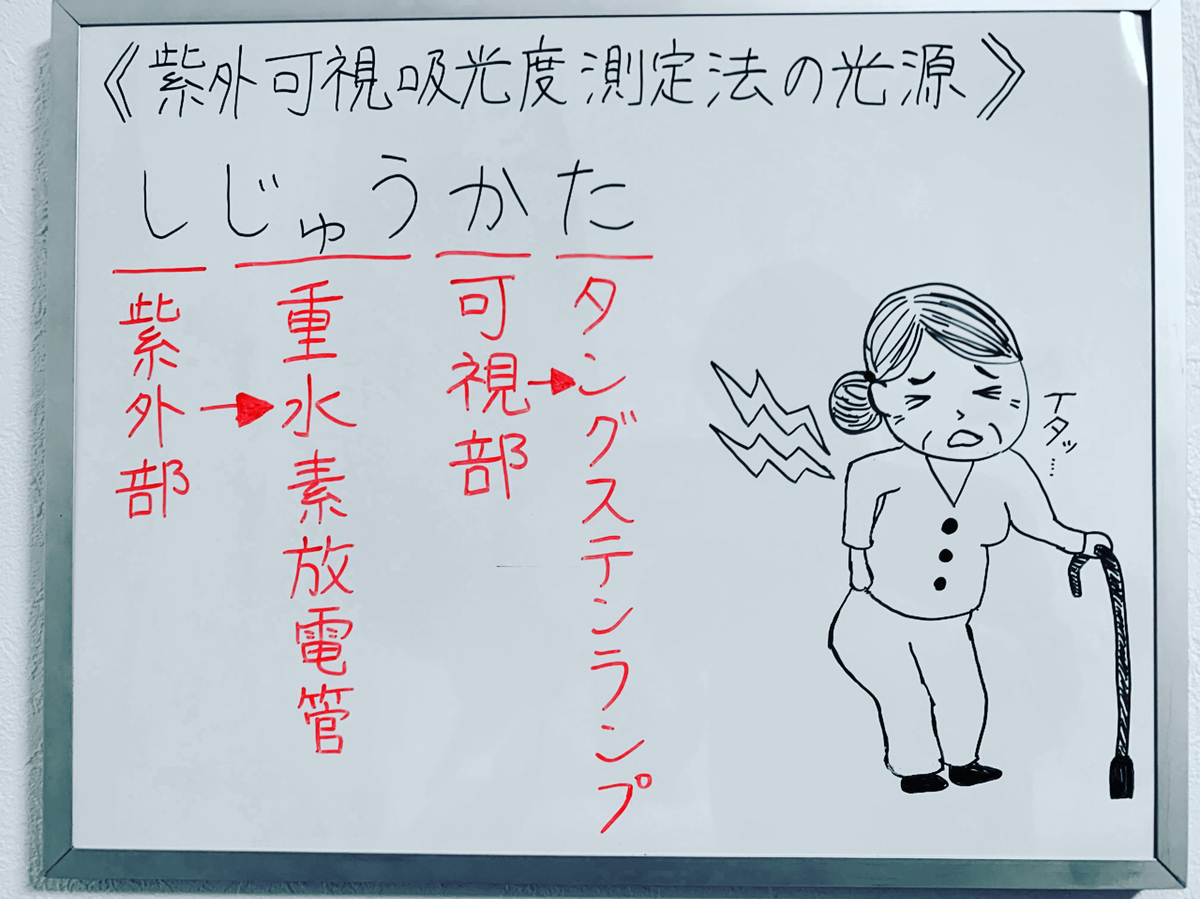 《紫外可視吸光度測定法の光源》
しじゅうかた
紫外部→重水素放電管
可視部→タングステンランプ
イタッ…